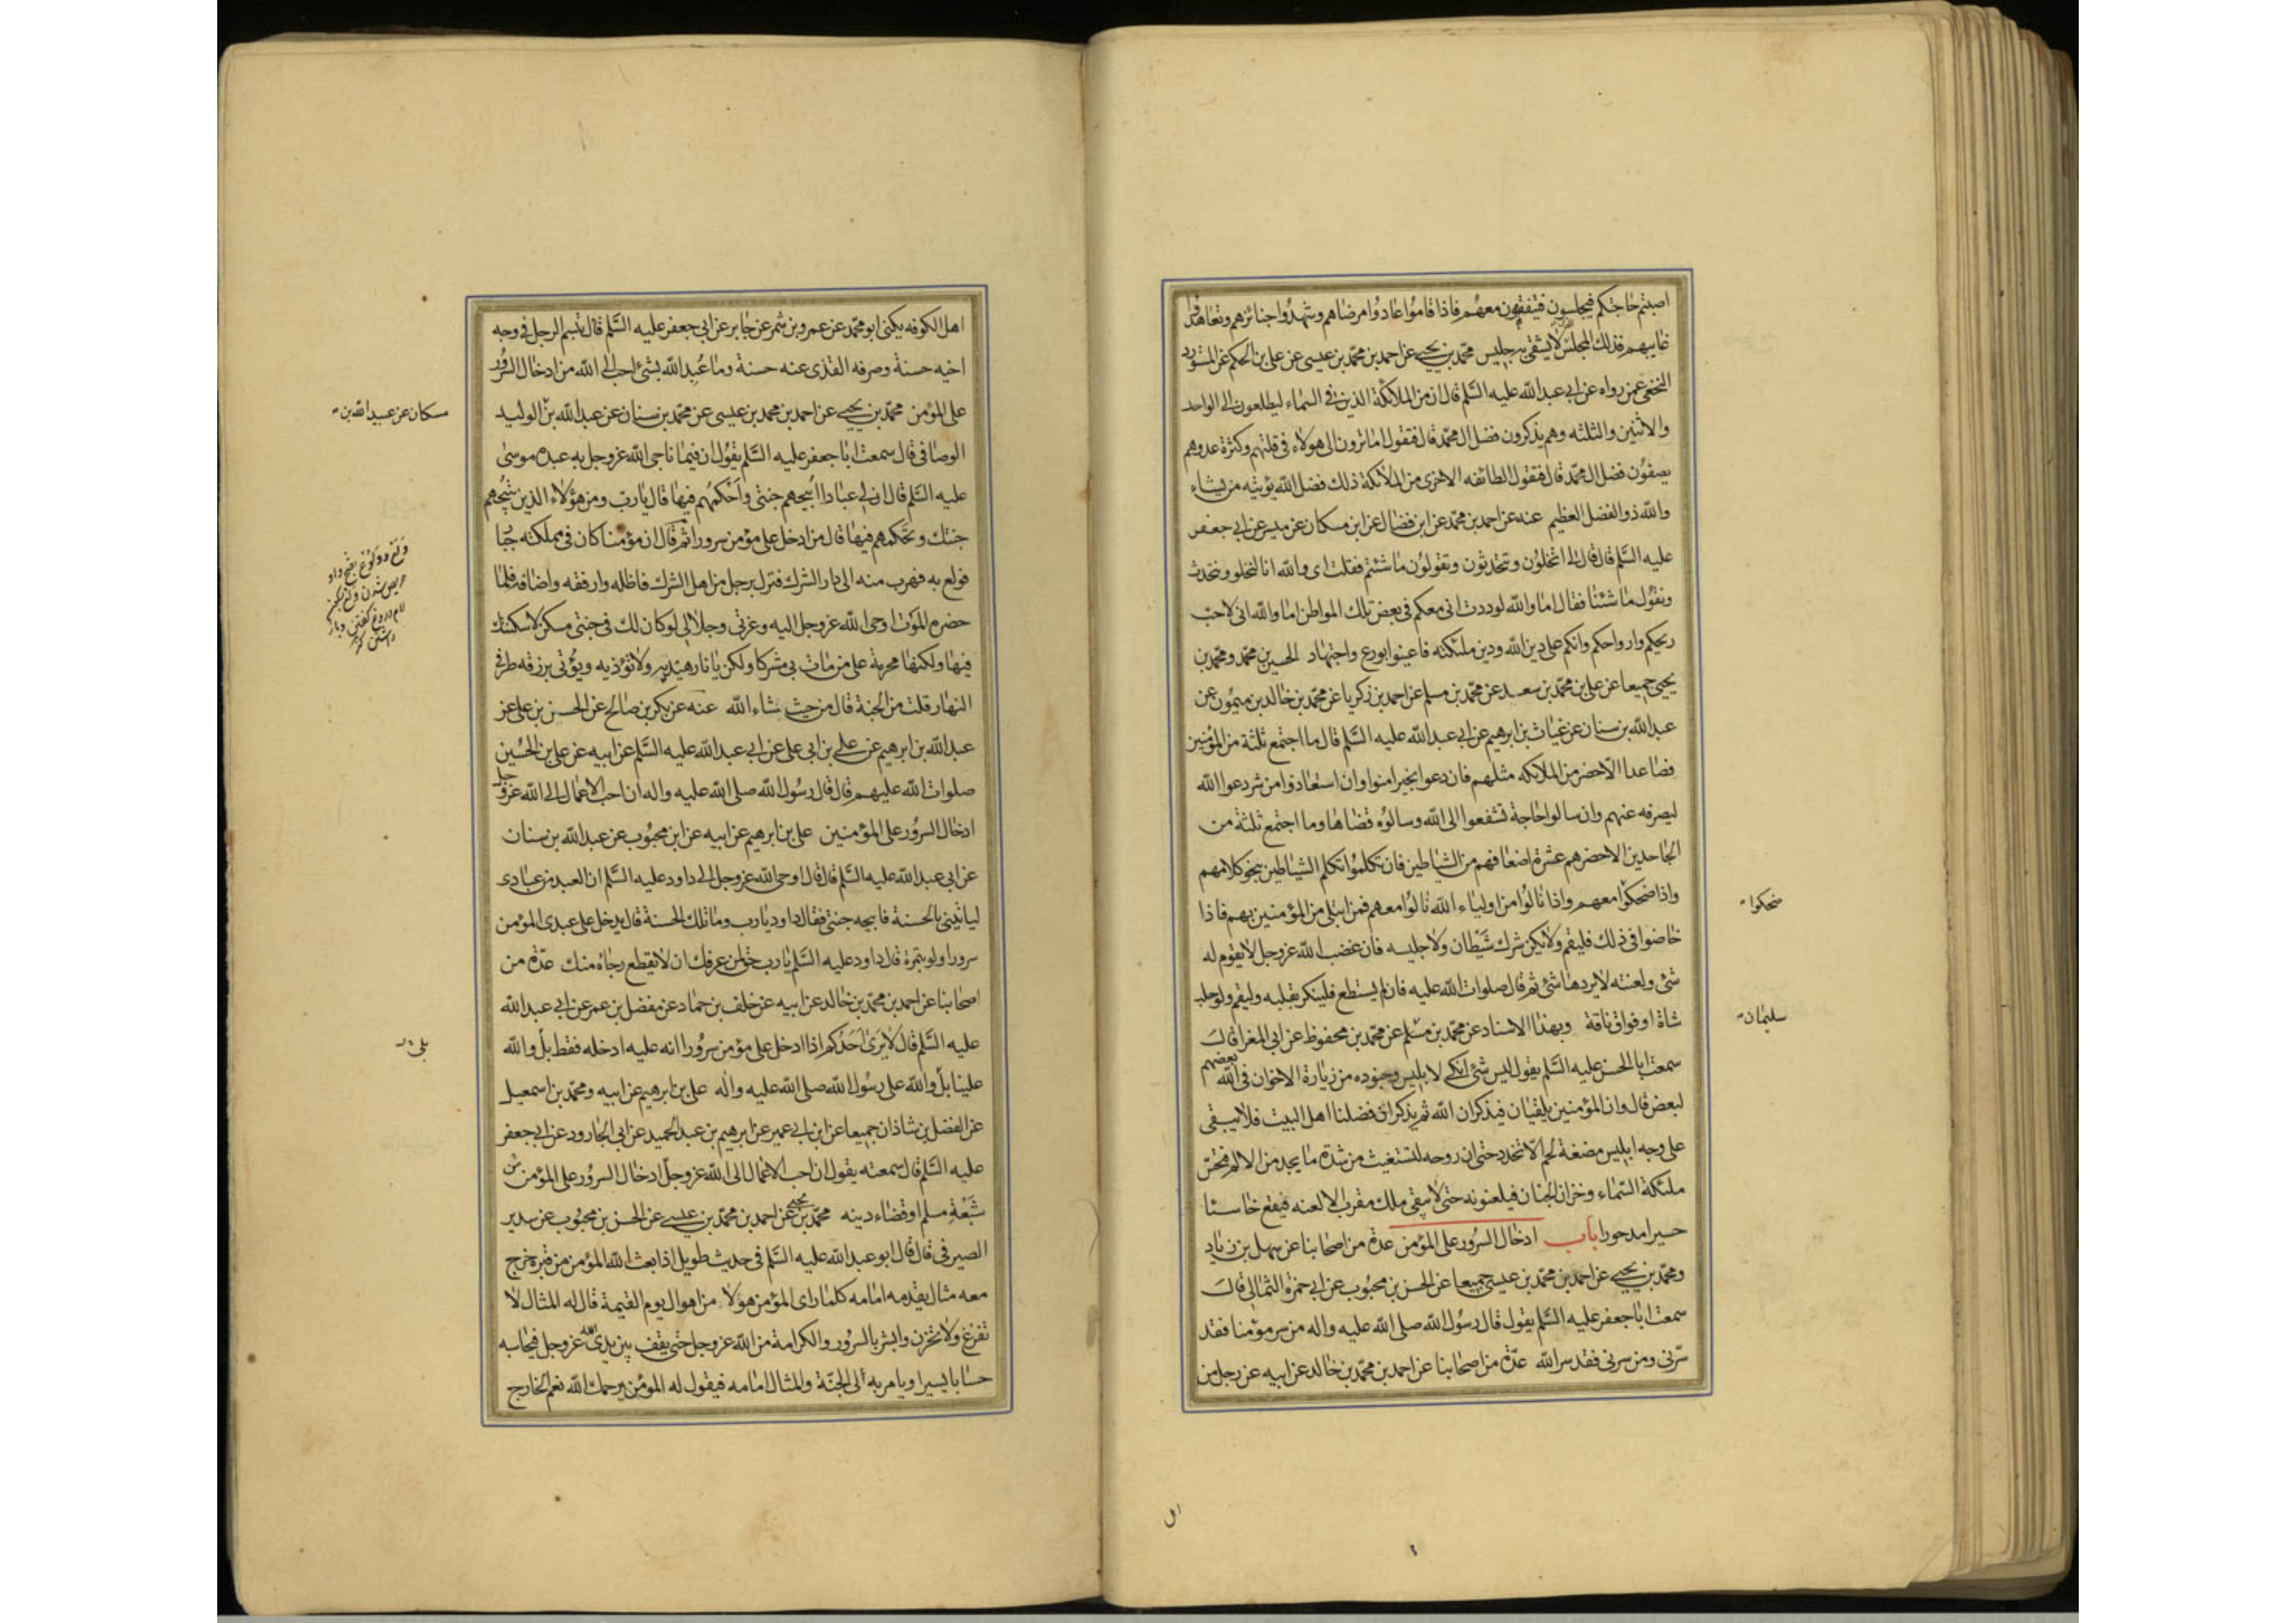 اصبتم حاجتكم فيجلسون فيتفقهون معهم فاذا قاموا عادوا مرضاهم وشهدوا جنائزهم وتعاهدوا
غايبهم فذلك المجلس لا يشقى به جليس محمّد بن يحيى عن احمد بن محمّد بن عيسى عن على بن الحكم عن المستورد
النخعى عمن رواه عن ابى عبد الله عليه السَّلم قال ان من الملائكة الذين فى السماء ليطلعون الى الواحد
والاثنين والثلثه وهم يذكرون فضل ال محمّد قال فتقول اما ترون الى هولاء فى قلتهم وكثرة عدوهم
يصفون فضل ال محمّد قال فتقول الطائفه الاخرى من الملائكة ذلك فضل الله يؤتيه من يشاء
والله ذو الفضل العظيم عنه عن احمد بن محمّد عن ابن فضال عن ابن مسكان عن ميسر عن ابى جعفر
عليه السَّلم قال قال لى اتخلون وتتحدثون وتقولون ما شئتم فقلت اى والله انا لنخلو ونتحدث
ونقول ما شئنا فقال اما والله لوددت انى معكم فى بعض تلك المواطن اما والله انى لاحب
ريحكم وارواحكم وانكم على دين الله ودين ملئكته فاعينوا بورع واجتهاد الحسين بن محمّد ومحمّد بن
يحيى جميعا عن على بن محمّد بن سعد عن محمّد بن مسلم عن احمد بن زكريا عن محمّد بن خالد بن ميمون عن
عبد الله بن سنان عن غياث بن ابرهيم عن ابى عبد الله عليه السَّلم قال ما اجتمع ثلثة من المؤمنين
فصاعدا الّا حضر من الملائكه مثلهم فان دعوا بخير امنوا وان استعاذوا من شر دعوا الله
ليصرفه عنهم وان سالوا حاجة تشفعوا الى الله وسالوه قضاها وما اجتمع ثلثة من
الجاحدين الا حضرهم عشرة اضعافهم من الشياطين فان تكلموا تكلم الشياطين بنحو كلامهم
واذا ضحكوا معهم واذا نالوا من اولياء الله نالوا معهم فمن ابتلى من المؤمنين بهم فاذا
ضحكوا
خاضوا فى ذلك فليقم ولا يكن شرك شيطان ولا جليسه فان غضب الله عز وجل لا يقوم له
شئ ولعنته لا يردها شئ ثم قال صلوات الله عليه فان لم يستطع فلينكر بقلبه وليقم ولو حلب
شاة او فواق ناقة وبهذا الاسناد عن محمّد بن مسلم عن محمّد بن محفوظ عن ابى المغرا قال
سليمان
سمعت ابا الحسن عليه السَّلم يقول ليس شئ انكى لابليس وجنوده من زيارة الاخوان فى الله بعضهم
لبعض قال وان المؤمنين يلتقيان فيذكران الله ثم يذكران فضلنا اهل البيت فلا يبقى
على وجه ابليس مضغة لحم الّا تتخدد حتى ان روحه لتستغيث من شدة ما يجد من الالم فتحس
ملئكة السّماء وخزان الجنان فيلعنونه حتى لا يبقى ملك مقرب الا لعنه فيقع خاسئا
حسيرا مدحورا باب ادخال السرور على المؤمن عدة من اصحابنا عن سهل بن زياد
ومحمّد بن يحيى عن احمد بن محمّد بن عيسى جميعا عن الحسن بن محبوب عن ابى حمزة الثمالى قال
سمعت ابا جعفر عليه السَّلم يقول قال رسول الله صلى الله عليه واله من سر مؤمنا فقد
سرّنى ومن سرنى فقد سر الله عدّة من اصحابنا عن احمد بن محمّد بن خالد عن ابيه عن رجل من
اهل الكوفه يكنى ابو محمّد عن عمرو بن شمر عن جابر عن ابى جعفر عليه السَّلم قال تبسم الرجل فى وجه
اخيه حسنة وصرفه القذى عنه حسنة وما عُبِد الله بشئ احب الى الله من ادخال السرور
على المؤمن محمّد بن يحيى عن احمد بن محمد بن عيسى عن محمّد بن سنان عن عبد الله بن الوليد
مسكان عن عبيد الله بن
الوصافى قال سمعت ابا جعفر عليه السَّلم يقول ان فيما ناجى الله عز وجل به عبده موسى
عليه السَّلم قال ان لى عبادا ابيحهم جنتى واحكمهم فيها قال يا رب ومن هؤلاء الذين تبيحهم
جنتك وتحكمهم فيها قال من ادخل على مؤمن سرورا ثم قال ان مؤمنا كان فى مملكته جبار
فولع به فهرب منه الى دار الشرك فنزل برجل من اهل الشرك فاظله وارفقه واضافه فلما
ولع دروغ بفتح واو
حريص شدن ولع بسكون
لام دروغ گفتن وباز
داشتن
حضره الموت اوحى الله عز وجل اليه وعزتى وجلالى لو كان لك فى جنتى مسكن لاسكنتك
فيها ولكنها محرمة على من مات بى مشركا ولكن يا نار هيديه ولا تؤذيه ويؤتى برزقه طرفى
النهار قلت من الجنة قال من حيث شاء الله عنه عن بكر بن صالح عن الحسن بن على عن
عبد الله بن ابرهيم عن على بن ابى على عن ابى عبد الله عليه السَّلم عن ابيه عن على بن الحسين
صلوات الله عليهم قال قال رسول الله صلى الله عليه واله ان احب الاعمال الى الله عز وجل
ادخال السرور على المؤمنين على بن ابرهيم عن ابيه عن ابن محبوب عن عبد الله بن سنان
عن ابى عبد الله عليه السَّلم قال قال اوحى الله عز وجل الى داود عليه السَّلم ان العبد من عبادى
لياتينى بالحسنة فابيحه جنتى فقال داود يا رب وما تلك الحسنة قال يدخل على عبدى المؤمن
سرورا ولو بتمرة قال داود عليه السَّلم يا رب حق لمن عرفك ان لا يقطع رجاه منك عدّة من
اصحابنا عن احمد بن محمّد بن خالد عن ابيه عن خلف بن حماد عن مفضل بن عمر عن ابى عبد الله
عليه السَّلم قال لا يرى احدكم اذا ادخل على مؤمن سرورا انه عليه ادخله فقط بل والله
بلى
علينا بل والله على رسول الله صلى الله عليه واله على بن ابرهيم عن ابيه ومحمّد بن اسمعيل
عن الفضل بن شاذان جميعا عن ابن ابى عمير عن ابرهيم بن عبد الحميد عن ابى الجارود عن ابى جعفر
عليه السَّلم قال سمعته يقول ان احب الاعمال الى الله عز وجلّ ادخال السرور على المؤمن من
شبعة مسلم او قضاء دينه محمّد بن يحيى عن احمد بن محمّد بن عيسى عن الحسن بن محبوب عن سدير
الصيرفى قال قال ابو عبد الله عليه السَّلم فى حديث طويل اذا بعث الله المؤمن من قبره خرج
معه مثال يقدمه امامه كلما راى المؤمن هولا من اهوال يوم القيمة قال له المثال لا
تفزع ولا تحزن وابشر بالسرور والكرامة من الله عز وجل حتى يقف بين يدى الله عز وجل فيحاسبه
حسابا يسيرا ويامر به الى الجنّة والمثال امامه فيقول له المؤمن يرحمك الله نعم الخارج